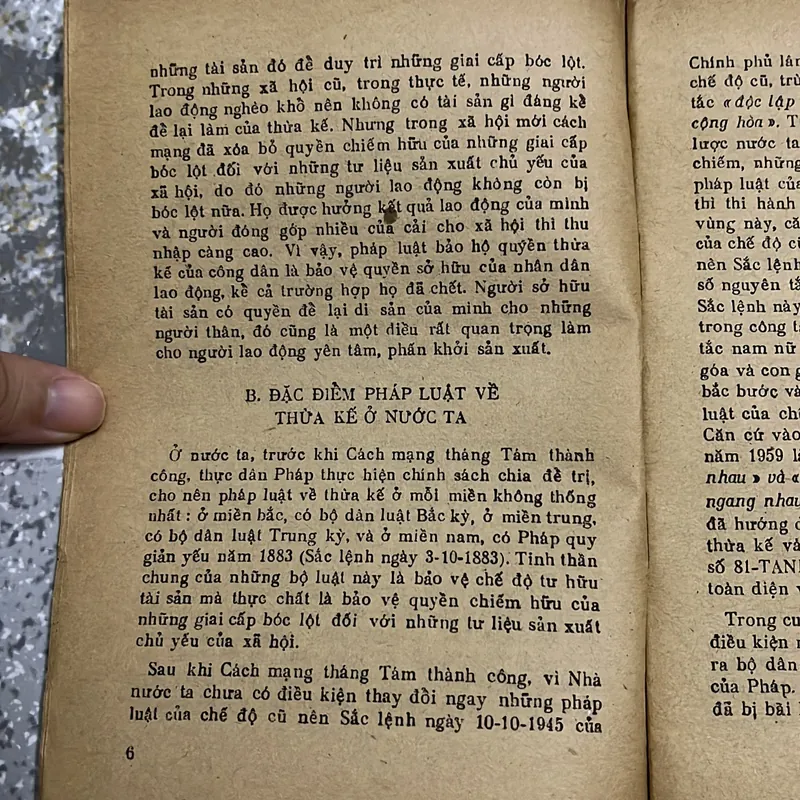 những tài sản đó để duy trì những giai cấp bóc lột.
Trong những xã hội cũ, trong thực tế, những người
lao động nghèo khổ nên không có tài sản gì đáng kể
để lại làm của thừa kế. Nhưng trong xã hội mới cách
mạng đã xóa bỏ quyền chiếm hữu của những giai cấp
bóc lột đối với những tư liệu sản xuất chủ yếu của
xã hội, do đó những người lao động không còn bị
bóc lột nữa. Họ được hưởng kết quả lao động của mình
và người đóng góp nhiều của cải cho xã hội thì thu
nhập càng cao. Vì vậy, pháp luật bảo hộ quyền thừa
kế của công dân là bảo vệ quyền sở hữu của nhân dân
lao động, kể cả trường hợp họ đã chết. Người sở hữu
tài sản có quyền để lại di sản của mình cho những
người thân, đó cũng là một điều rất quan trọng làm
cho người lao động yên tâm, phấn khởi sản xuất.
B. ĐẶC ĐIỂM PHÁP LUẬT VỀ
THỪA KẾ Ở NƯỚC TA
Ở nước ta, trước khi Cách mạng tháng Tám thành
công, thực dân Pháp thực hiện chính sách chia để trị,
cho nên pháp luật về thừa kế ở mỗi miền không thống
nhất : ở miền bắc, có bộ dân luật Bắc kỳ, ở miền trung,
có bộ dân luật Trung kỳ, và ở miền nam, có Pháp quy
giản yếu năm 1883 (Sắc lệnh ngày 3-10-1883). Tinh thần
chung của những bộ luật này là bảo vệ chế độ tư hữu
tài sản mà thực chất là bảo vệ quyền chiếm hữu của
những giai cấp bóc lột đối với những tư liệu sản xuất
chủ yếu của xã hội.
Sau khi Cách mạng tháng Tám thành công, vì Nhà
nước ta chưa có điều kiện thay đổi ngay những pháp
luật của chế độ cũ nên Sắc lệnh ngày 10-10-1945 của
6
Chính phủ lâm
chế độ cũ, trừ
tắc « độc lập
cộng hòa ». T
lược nước ta
chiếm, những
pháp luật của
thì thi hành
vùng này, că
của chế độ cũ
nên Sắc lệnh
số nguyên tắ
Sắc lệnh này
trong công t
tắc nam nữ
góa và con g
bắc bước và
luật của ch
Căn cứ vào
năm 1959 l
nhau » và «
ngang nhau
đã hướng d
thừa kế và
số 81-TAN
toàn diện v
Trong cu
điều kiện n
ra bộ dân
của Pháp.
đã bị bài